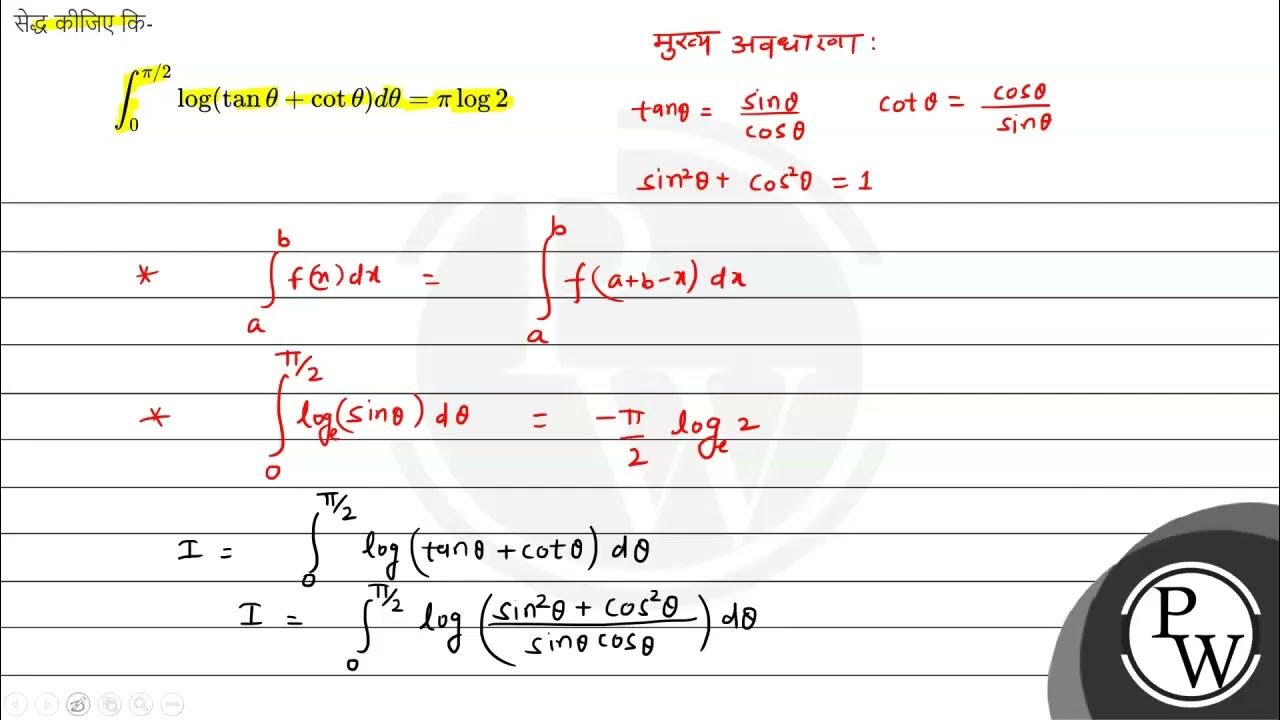 सेद्ध कीजिए कि-
∫₀^{π/2} log(tan θ + cot θ)dθ = π log 2
मुख्य अवधारणा :
tanθ = sinθ/cosθ cotθ = cosθ/sinθ
sin²θ + cos²θ = 1
* ∫ₐᵇ f(x) dx = ∫ₐᵇ f(a+b-x) dx
* ∫₀^{π/2} logₑ(sinθ) dθ = -π/2 logₑ 2
I = ∫₀^{π/2} log(tanθ + cotθ) dθ
I = ∫₀^{π/2} log((sin²θ + cos²θ)/(sinθ cosθ)) dθ
PW